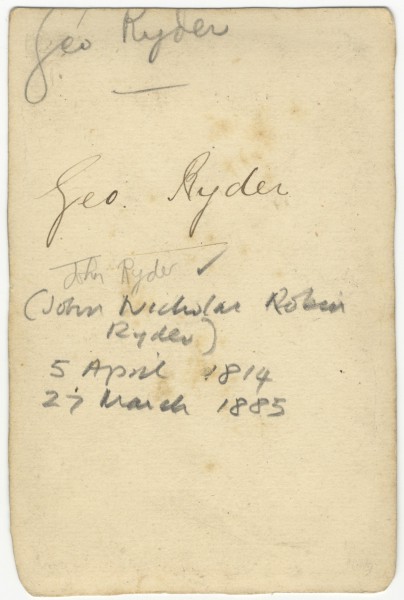 Geo Ryder
Geo. Ryder
John Ryder ✓
(John Nicholas Robin
Ryder)
5 April 1814
27 March 1885